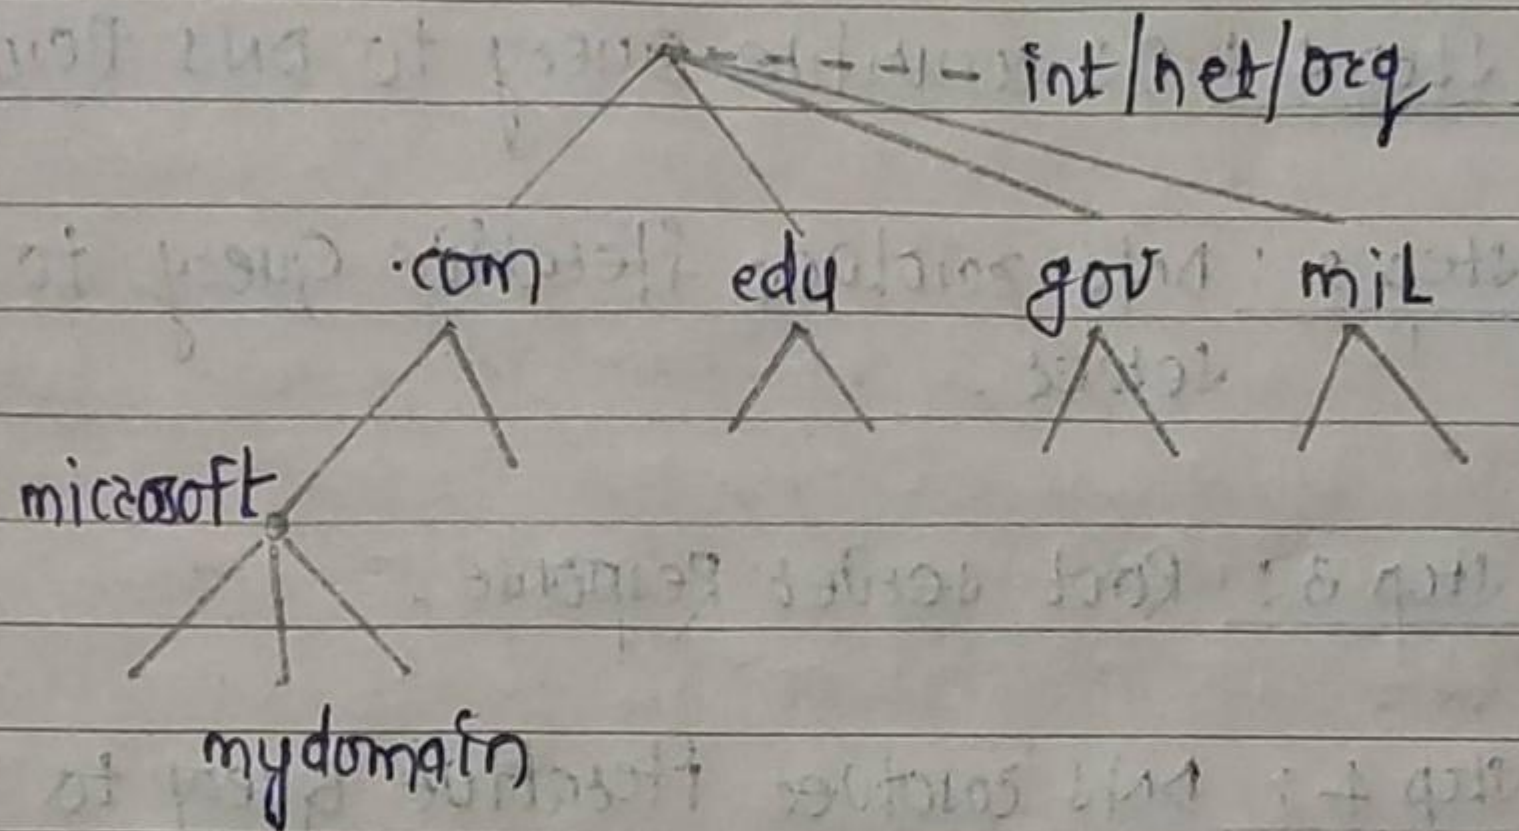 int/net/org
.com edu gov mil
microsoft
mydomain